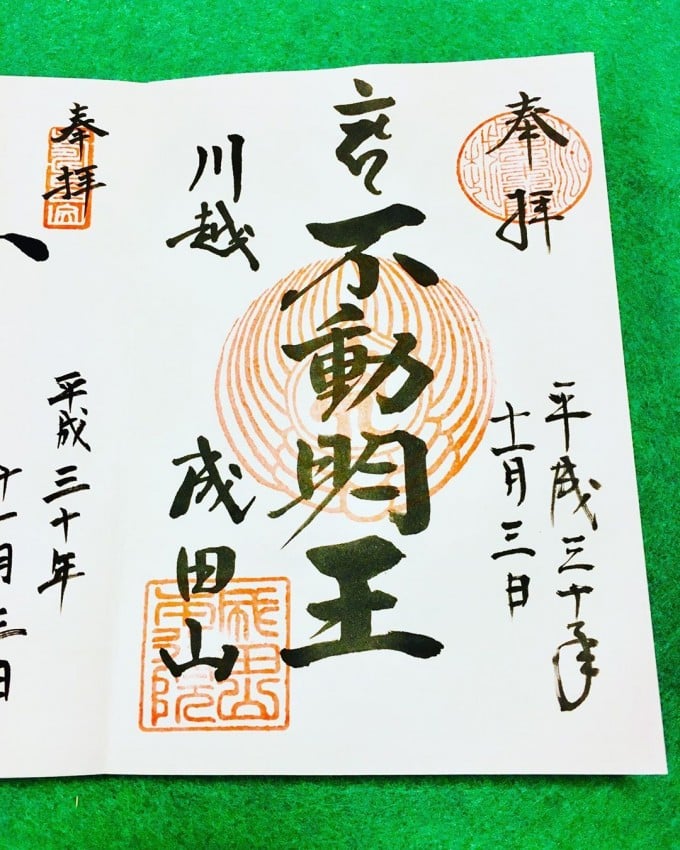 奉拝
平成三十年
十一月三日
不動明王
川越 成田山
成田山
本行院
奉拝
平成三十年
十一月三日